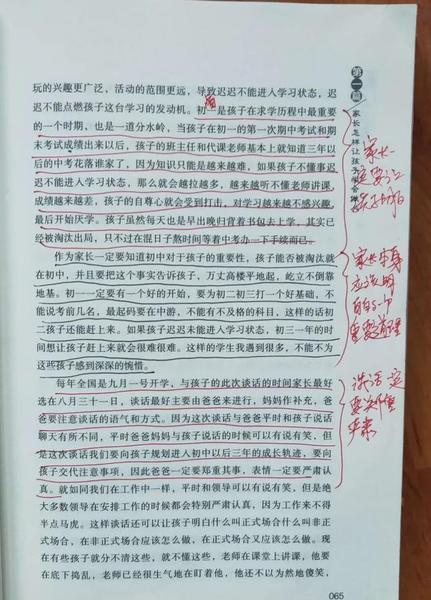 玩的兴趣更广泛，活动的范围更远，导致迟迟不能进入学习状态，迟
迟不能点燃孩子这台学习的发动机。初一是孩子在求学历程中最重要
的一个时期，也是一道分水岭，当孩子在初一的第一次期中考试和期
末考试成绩出来以后，孩子的班主任和代课老师基本上就知道三年以
后的中考花落谁家了，因为知识只能是越来越难，如果孩子不懂事迟
迟不能进入学习状态，那么就会越拉越多，越来越听不懂老师讲课，
成绩越来越差，孩子的自尊心就会受到打击，对学习越来越不感兴趣，
最后开始厌学。孩子虽然每天也是早出晚归背着书包去上学，其实已
经被淘汰出局，只不过在混日子熬时间等着中考办一下手续而已。
作为家长一定要知道初中对于孩子的重要性，孩子能否被淘汰就
在初中，并且要把这个事实告诉孩子，万丈高楼平地起，屹立不倒靠
地基。初一一定要有一个好的开始，要为初二初三打一个好基础，不
能说考前几名，最起码要在中游，不能有不及格的科目，这样的话初
二孩子还能赶上来。如果孩子迟迟未能进入学习状态，初三一年的时
间想让孩子赶上来就会很难很难。这样的学生我遇到很多，不能不为
这些孩子感到深深的惋惜。
每年全国是九月一号开学，与孩子的此次谈话的时间家长最好
选在八月三十一日，谈话最好主要由爸爸来进行，妈妈作补充，爸
爸要注意谈话的语气和方式。因为这次谈话与爸爸平时和孩子说话
聊天有所不同，平时爸爸妈妈与孩子说话的时候可以有说有笑，但
是这次谈话我们要向孩子规划进入初中以后三年的成长轨迹，要向
孩子交代注意事项，因此爸爸一定要郑重其事，表情一定要严肃认
真。就如同我们在工作中一样，平时和领导可以有说有笑，但是绝
大多数领导在安排工作的时候都会特别严肃认真，因为工作来不得
半点马虎。这样谈话还可以让孩子明白什么叫正式场合什么叫非正
式场合，在非正式场合应该怎么做，在正式场合又应该怎么做。现
在有些孩子就分不清这些，就不懂这些，老师在课堂上讲课，他要
在底下捣乱，老师已经很生气地在盯着他，他还不以为然地傻笑，
第一篇
家长怎样让孩子学会
家长一
定要让
孩子
家长本身
应该明
白的
重要道理
谈话一定
要郑重
严肃
065